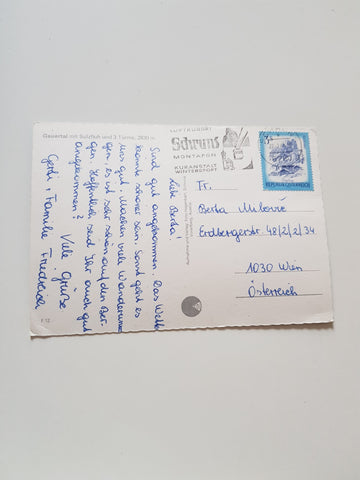 Gauertal mit Sulzfluh und 3 Türme, 2830 m
Liebe Berta!
Sind gut angekommen. Das Wetter
könnte schöner sein. Sonst geht es
uns gut. Machen viele Wanderun-
gen, es ist sehr schön auf den Ber-
gen. Hoffentlich seid Ihr auch gut
angekommen?
Viele Grüße
Gerti + Familie
F 12
LUFTKURORT
Schruns
MONTAFON
KURANSTALT
WINTERSPORT
REPUBLIK ÖSTERREICH
Fr.
Berta Milović
Erdbergerstr 48/2/2/34
1030 Wien
Österreich